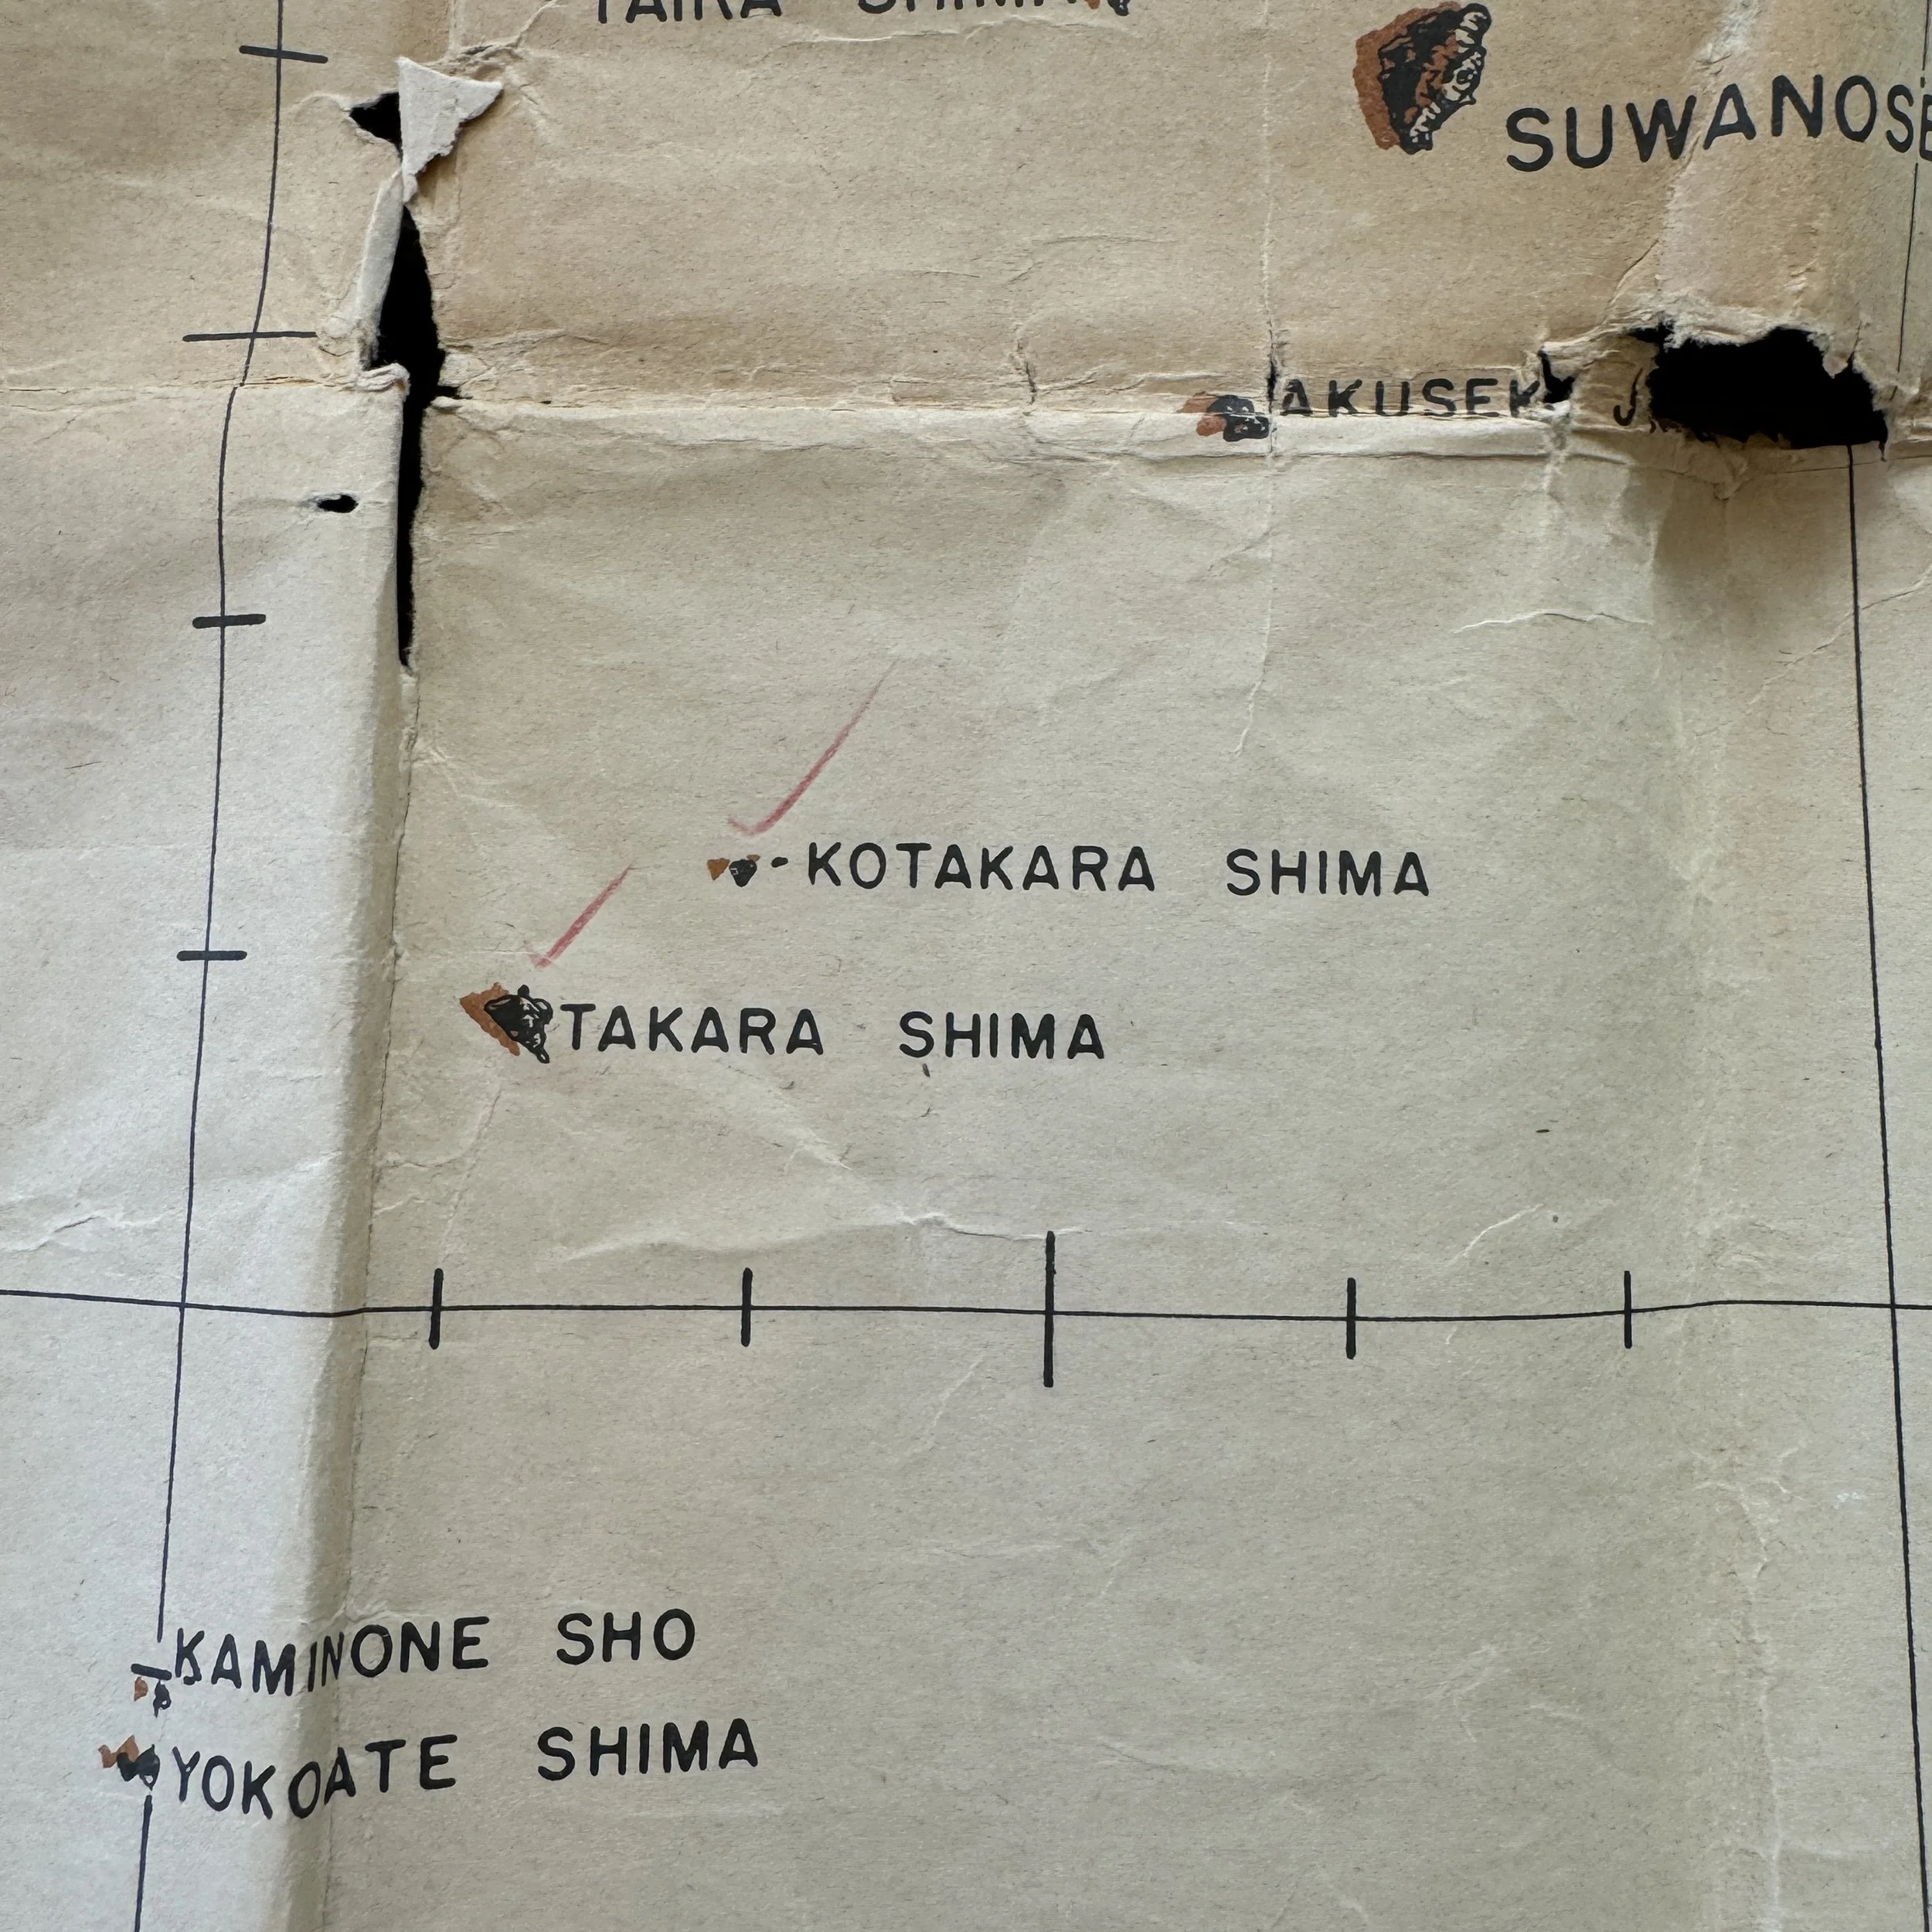 TAIRA SHIMA
SUWANOSE
AKUSEKI J
KOTAKARA SHIMA
TAKARA SHIMA
KAMINONE SHO
YOKOATE SHIMA